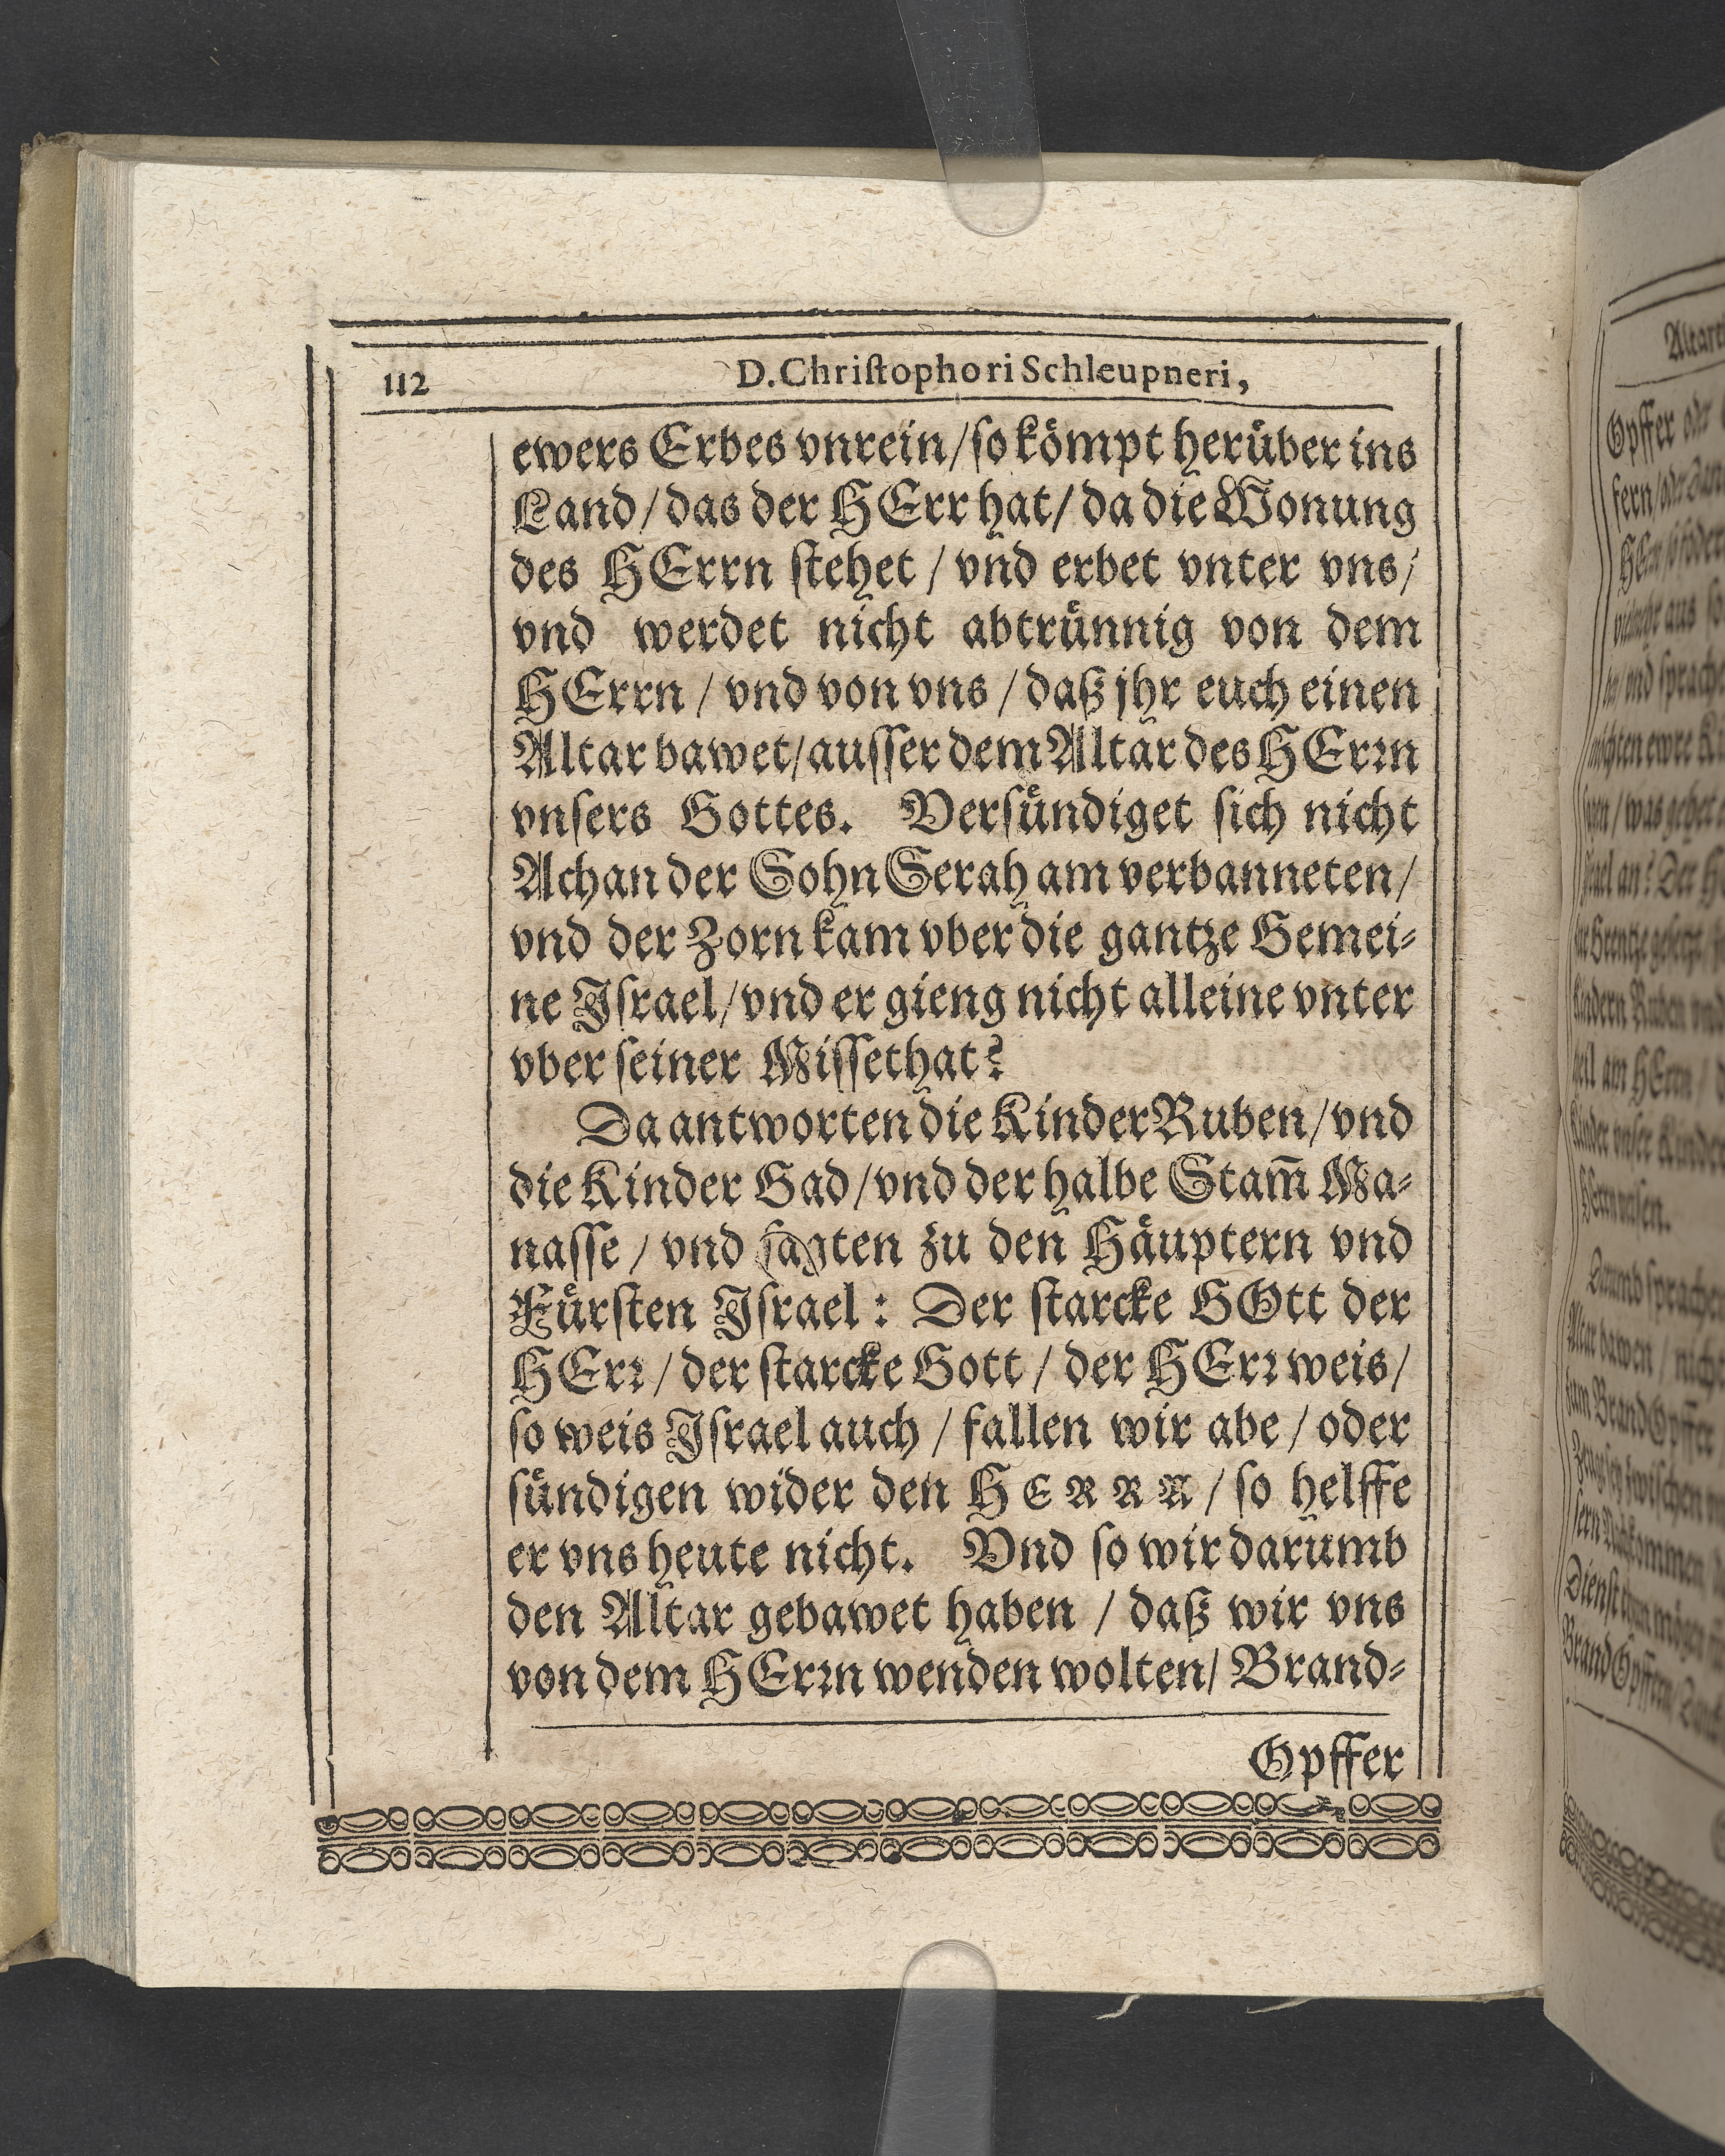 112
D. Chriſtophori Schleupneri,
ewers Erbes vnrein/ſo koͤmpt heruͤber ins
Land/das der HErr hat/da die Wonung
des HErrn ſtehet / vnd erbet vnter vns/
vnd werdet nicht abtruͤnnig von dem
HErrn / vnd von vns / daß jhr euch einen
Altar bawet/auſſer dem Altar des HErꝛn
vnſers Gottes. Verſuͤndiget ſich nicht
Achan der Sohn Serah am verbanneten/
vnd der Zorn kam vber die gantze Gemei⸗
ne Iſrael/vnd er gieng nicht alleine vnter
vber ſeiner Miſſethat?
Da antworten die Kinder Ruben/vnd
die Kinder Gad/vnd der halbe Stam̃ Ma⸗
naſſe / vnd ſagten zu den Haͤuptern vnd
Fuͤrſten Iſrael: Der ſtarcke GOtt der
HErꝛ / der ſtarcke Gott / der HErꝛ weis/
ſo weis Iſrael auch / fallen wir abe / oder
ſuͤndigen wider den HERRN / ſo helffe
er vns heute nicht. Vnd ſo wir darumb
den Altar gebawet haben / daß wir vns
von dem HErꝛn wenden wolten/ Brand⸗
Opffer